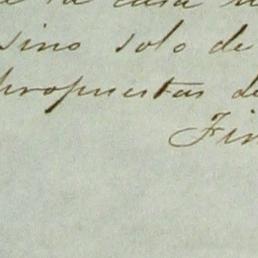 la casa
sino solo de
propuestas de
Fin